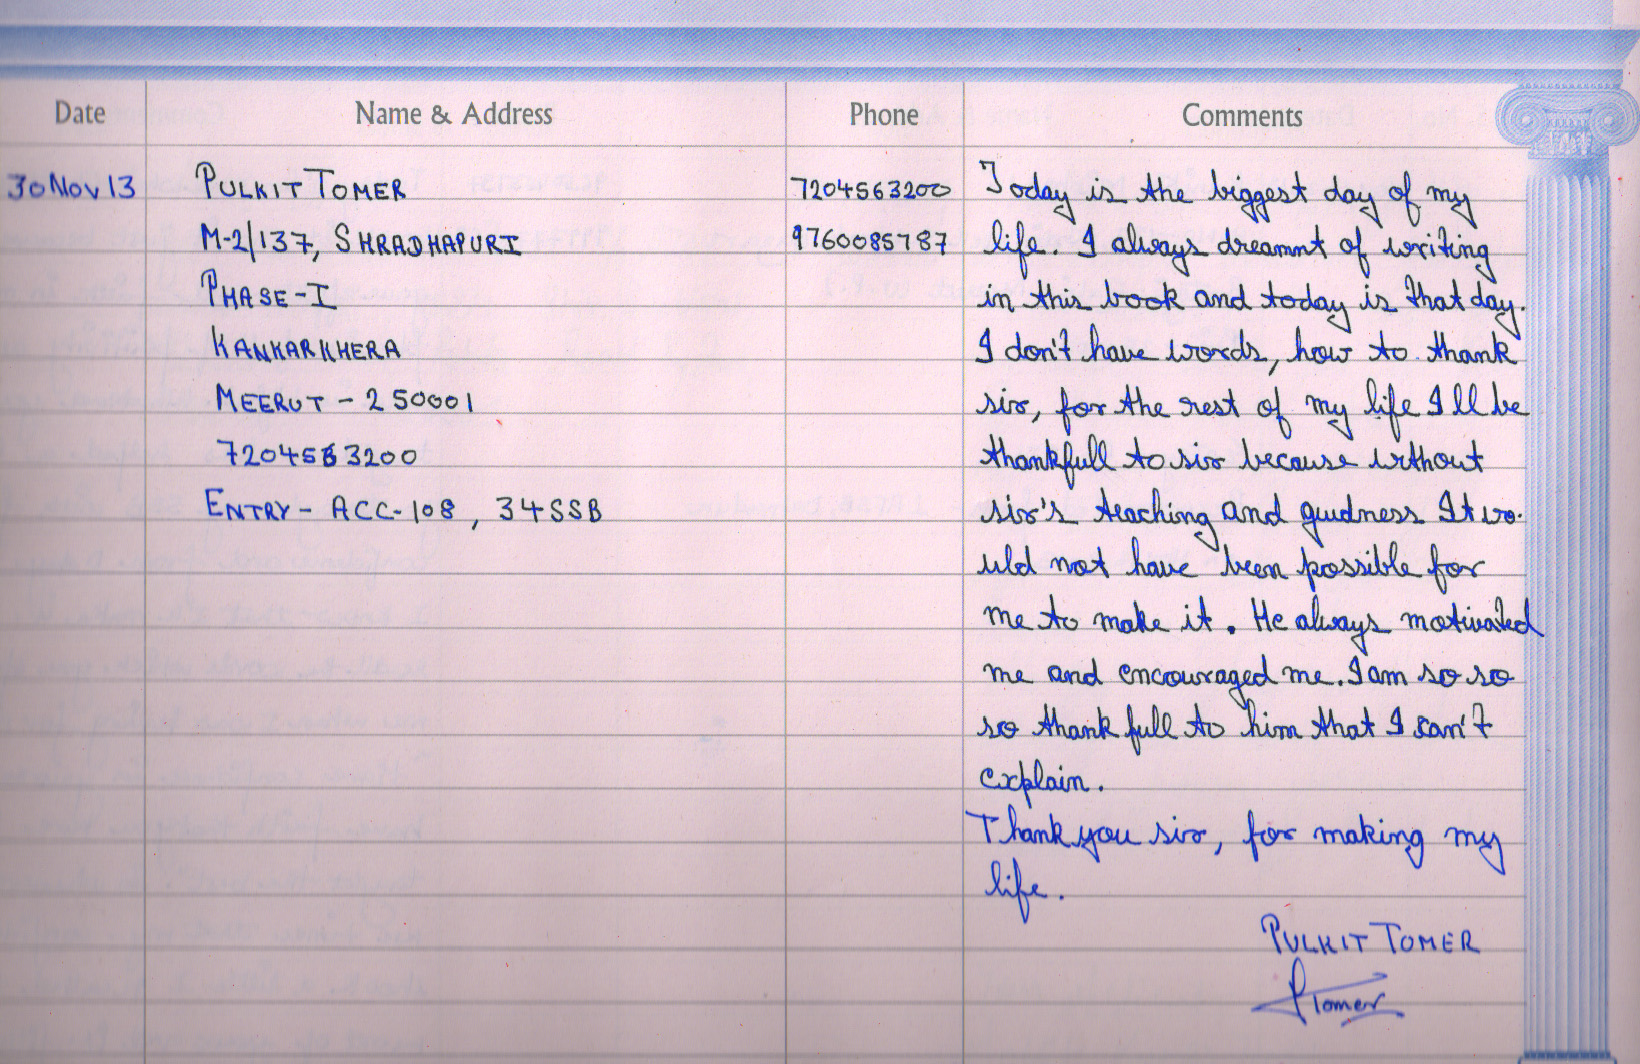 Date Name & Address Phone Comments
30 Nov 13
PULKIT TOMER
M-2/137, SHRADHAPURI
PHASE-I
KANKARKHERA
MEERUT - 250001
7204563200
ENTRY - ACC-108, 34SSB
7204563200
9760085787
Today is the biggest day of my
life. I always dreamnt of writing
in this book and today is that day.
I don't have words, how to thank
sir, for the rest of my life I'll be
thankfull to sir because without
sir's teaching and guidness It wo-
uld not have been possible for
me to make it. He always motivated
me and encouraged me. I am so so
so thankfull to him that I can't
explain.
Thank you sir, for making my
life.
PULKIT TOMER
PTomer